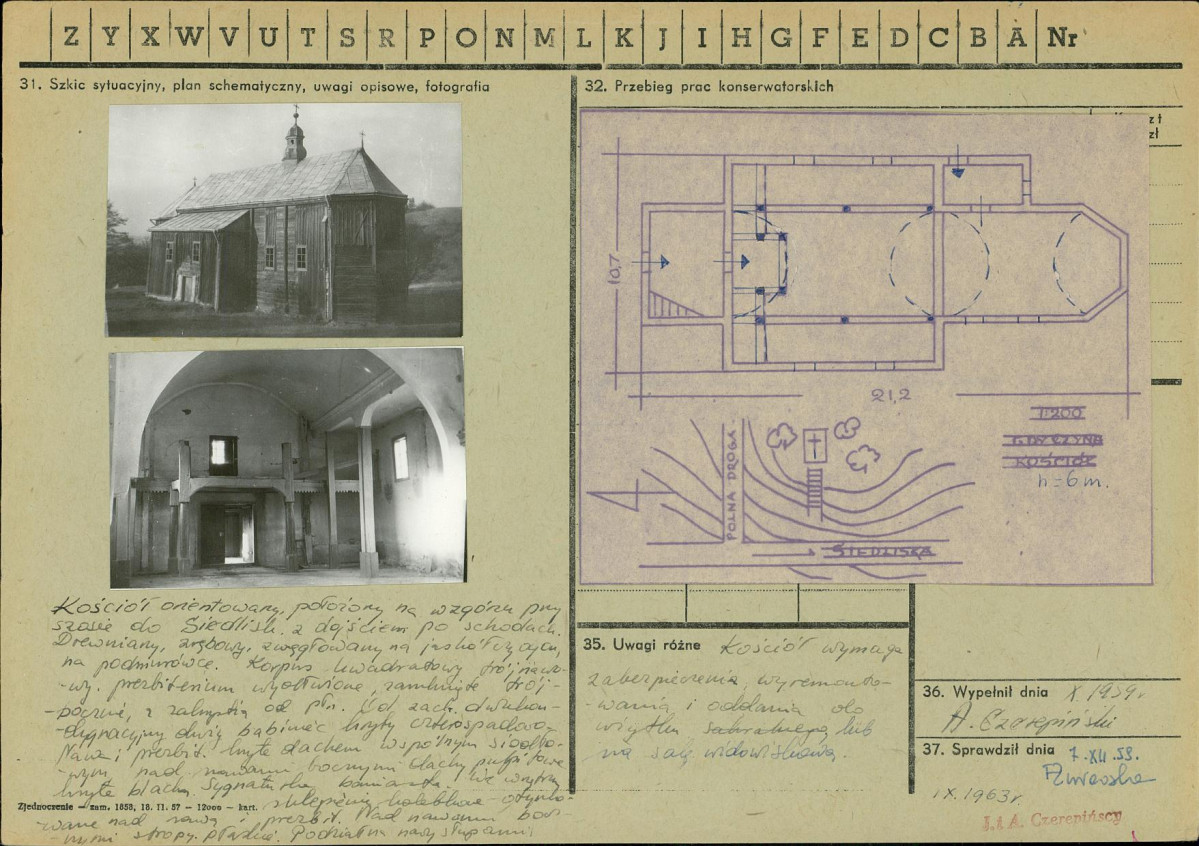 Z Y X W V U T S R P O N M L K J I H G F E D C B A Nr
31. Szkic sytuacyjny, plan schematyczny, uwagi opisowe, fotografia
32. Przebieg prac konserwatorskich
zł
10,7
21,2
1:200
GDYCZYNA
KOŚCIÓŁ
h = 6 m.
POLNA DROGA
SIEDLISKA
Kościół orientowany, położony na wzgórzu przy
szosie do Siedlisk z dojściem po schodach.
Drewniany, zrębowy, zwęgłowany na jaskółczy ogon,
na podmurówce. Korpus kwadratowy trójnawo-
-wy, prezbiterium wydłużone, zamknięte trój-
-bocznie, z zakrystią od płn. Od zach. dwukon-
-dygnacyjny babiniec kryty czterospadowo.
Nawa i prezbit. kryte dachem wspólnym siodło-
-wym, nad nawami bocznymi dachy pulpitowe
kryte blachą. Sygnaturka baniasta. We wnętrzu
sklepienia kolebkowe otynko-
-wane nad nawą i prezbit. Nad nawami bocz-
-nymi stropy płaskie. Podział na nawy słupami,
Zjednoczenie — zam. 1858, 18. 11. 57 — 12000 — kart.
35. Uwagi różne Kościół wymaga
zabezpieczenia, wyremonto-
-wania i oddania do
użytku sakralnego lub
na salę widowiskową.
36. Wypełnił dnia X 1959 r.
A. Czerepiński
37. Sprawdził dnia 7. XII. 59.
IX. 1963 r.
J. i A. Czerepińscy